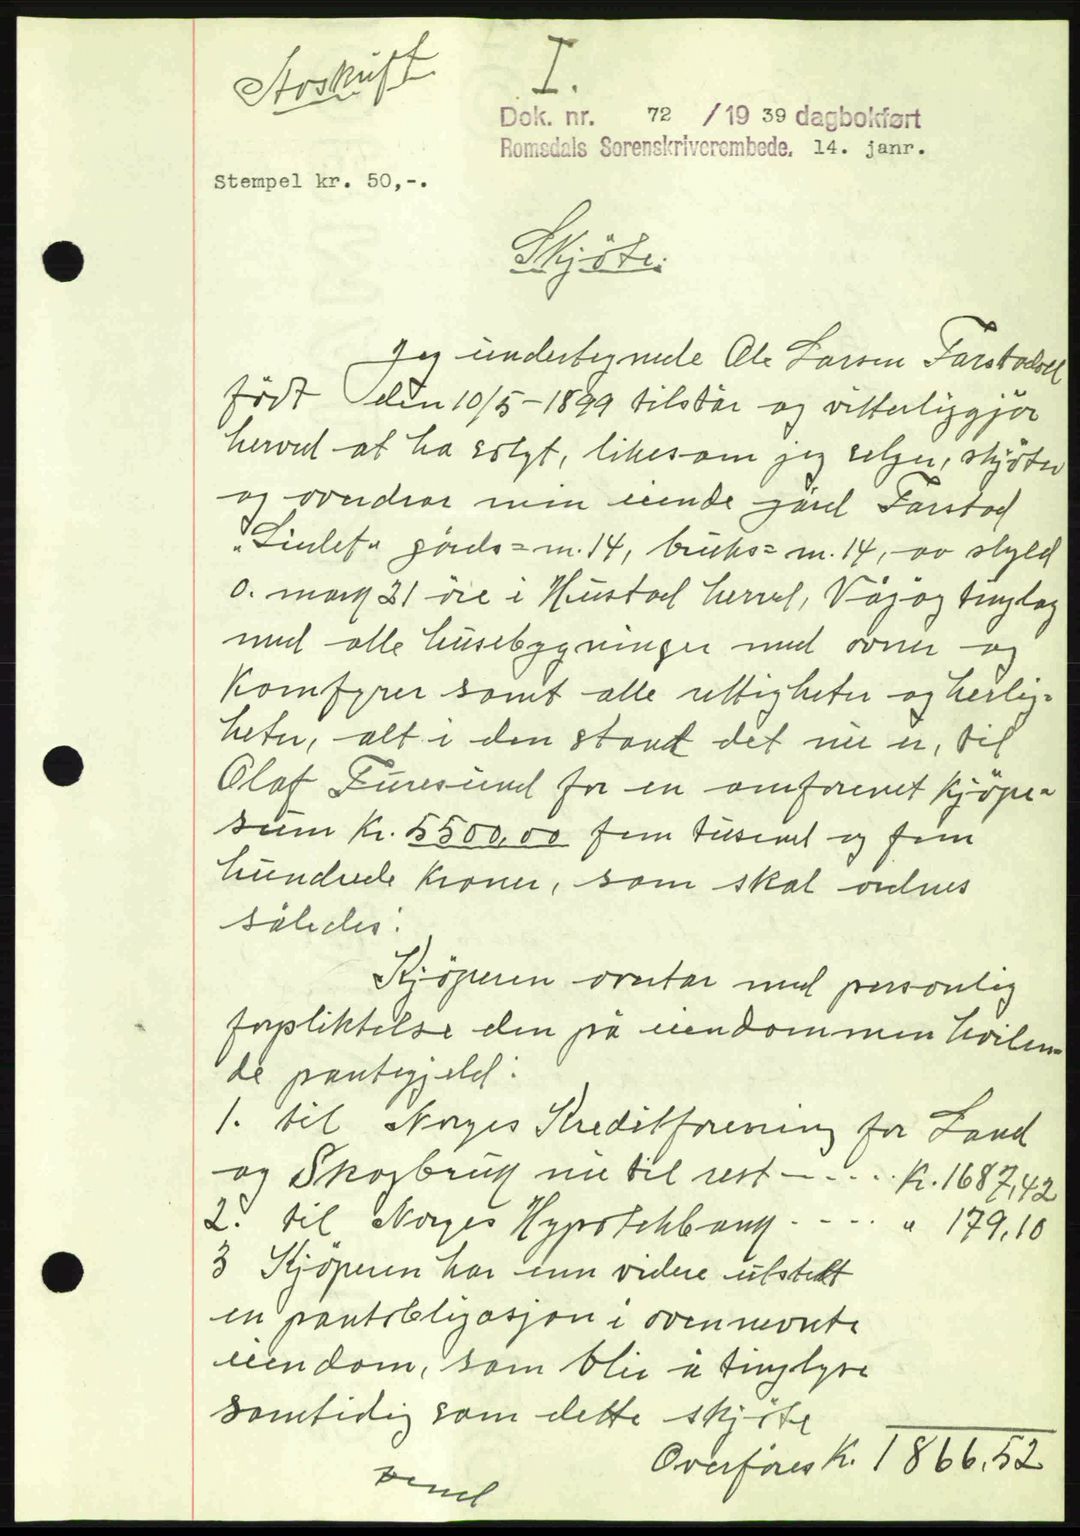 Avskrift
I.
Dok. nr. 72 /19 39 dagbokført
Romsdals Sorenskriverembede. 14. janr.
Stempel kr. 50,-.
Skjöte.
Jeg undertegnede Ole Larsen Farstad
født den 10/5-1899 tilstår og vitterliggjör
herved at ha solgt, likesom jeg selger, skjöter
og overdrar min eiende gård Farstad
gårds=nr. 14, bruks=nr. 14, av skyld
0. mark 21 öre i Hustad herred, Vågöy tinglag
med alle husebygninger med ovner og
Komfyrer samt alle rettigheter og herlig=
heter, alt i den stand det nu er, til
Olaf Furesund for en omforenet kjöpe=
sum Kr. 5500,00 fem tusend og fem
hundrede kroner, som skal ordnes
således:
Kjöperen overtar med personlig
forpliktelse den på eiendommen hvilen=
de pantegjeld:
1. til Norges Kreditforening for Land
og Skogbruk nu til rest - - - - K. 1687,42
2. til Norges Hypotekbank - - - - " 179,10
3 Kjöperen har enn videre utstedt
en pantobligasjon i ovennevnte
eiendom, som blir å tinglyse
samtidig som dette skjöte
Overföres K. 1866,52
vend